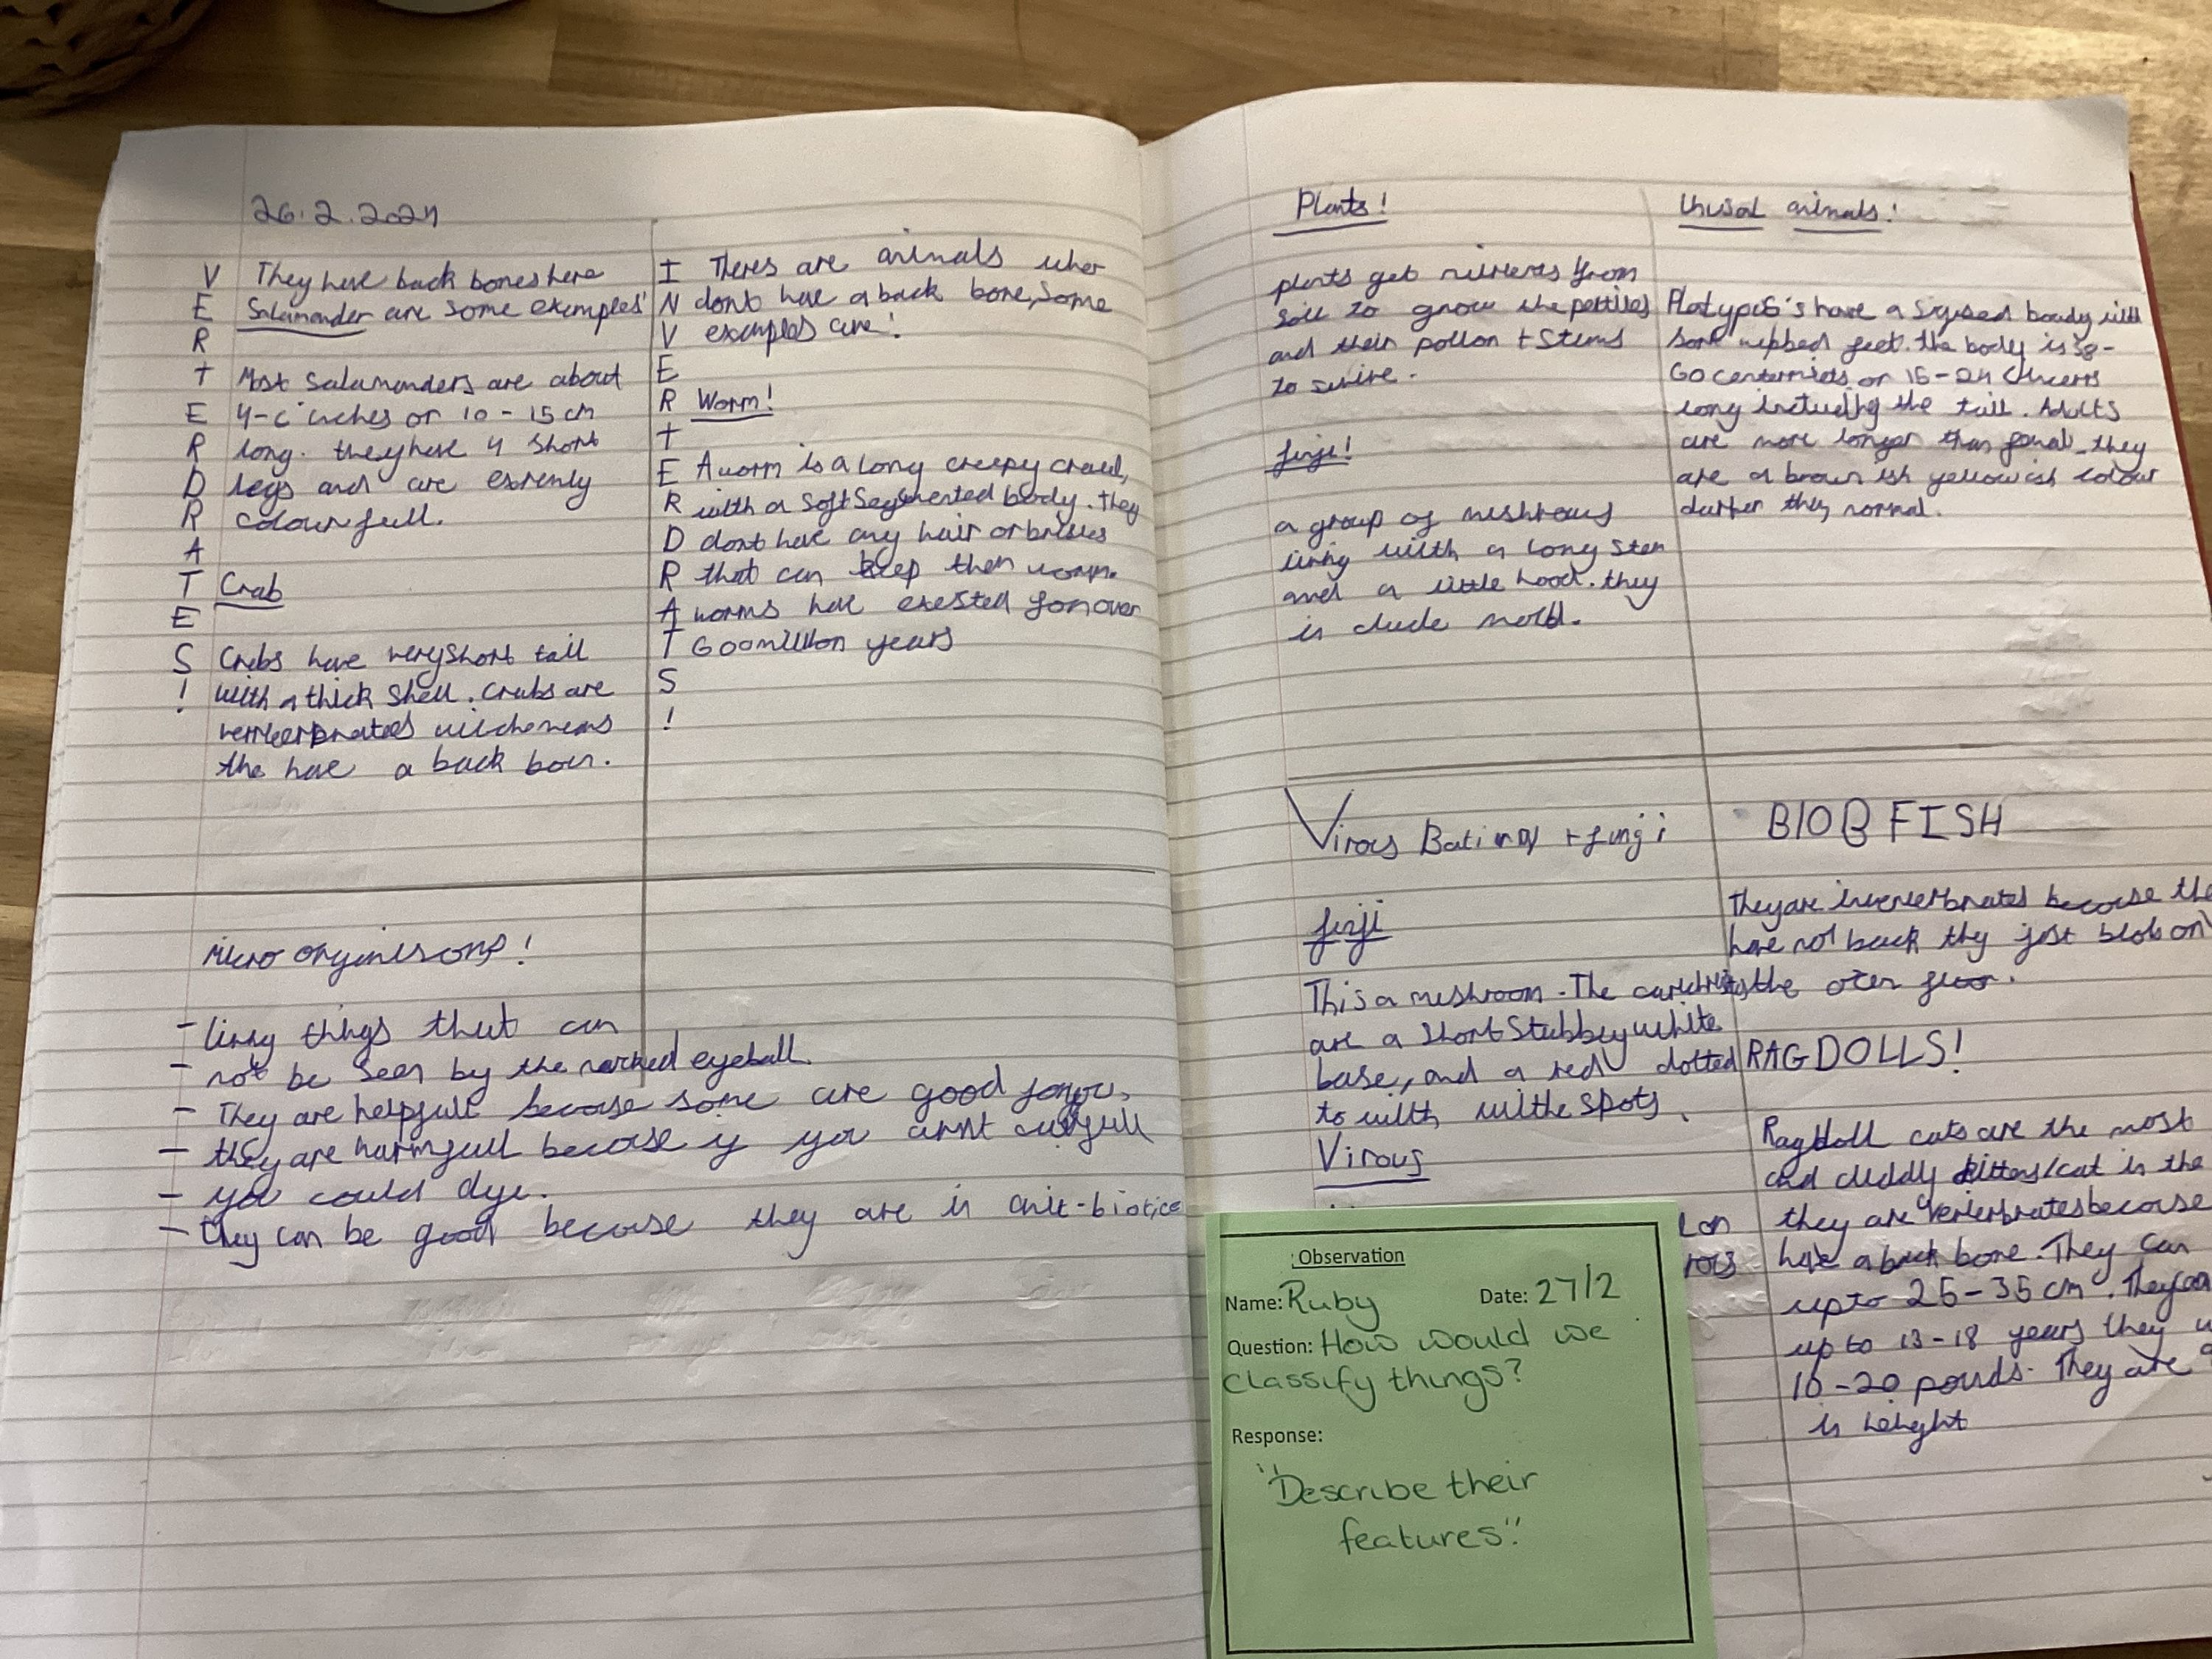 26.2.2024
VERTERDRATES!
They have back bones here
Salamander are some examples'
Most Salamanders are about
4-6 inches or 10-15 cm
long. they have 4 short
legs and are extremly
colourfull.
Crab
Crabs have very short tail
with a thick shell. Crabs are
the have a back
INVERTERDRATS!
Theres are animals
dont have a back bone, some
examples are!
Worm!
A worm is a long creepy crawl,
with a soft segmented body. they
dont have any hair or
that can keep them worm.
worms have exested for over
600 million years
Micro
- living things that can
- not be seen by the narked eyeball.
- They are helpfull because some are good for you,
- they are harmfull becose if you arnt
- you could dye.
- they can be good because they are in
Plants!
plants get from
soil to grow the
and their pollon + stems
to
funji!
a group of
living with a long stem
and a little hood. they
include mold.
Unusal animals!
have a body with
feet. the body is 38-
60 or 15-24
long the tail. Adults
are more longer than they
are a brown ish yellowish colour
normal.
Virous + fungi
funji
This a mushroom. The
are a short stubbey white
base, and a red dotted
to with spots.
Virous
BlOB FISH
They are because
have not back they just blob on
the floor.
RAGDOLLS!
Ragdoll cats are the most
and cuddly kittens/cat in the
they are because
have a back bone. They can
up to 25-35 cm. They can
up to 13-18 years they
10-20 pounds. They are
in
Observation
Name: Ruby Date: 27/2
Question: How would we
classify things?
Response:
"Describe their
features".